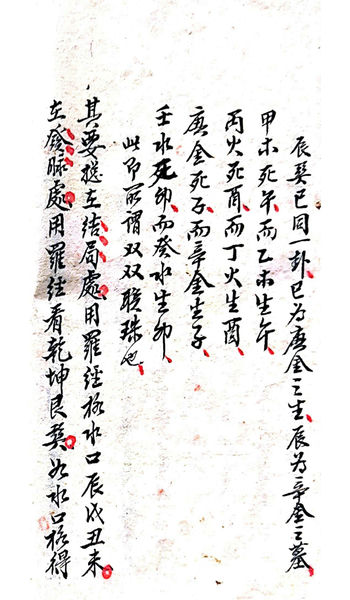 辰巽巳同一卦巳为庚金之生辰为辛金之墓
甲木死午而乙木生午
丙火死酉而丁火生酉
庚金死子而辛金生子
壬水死卯而癸水生卯
此即所谓双双联珠也
其要总在结局處用羅经格水口辰戌丑未
在發脉處用羅经看乾坤艮巽如水口格得